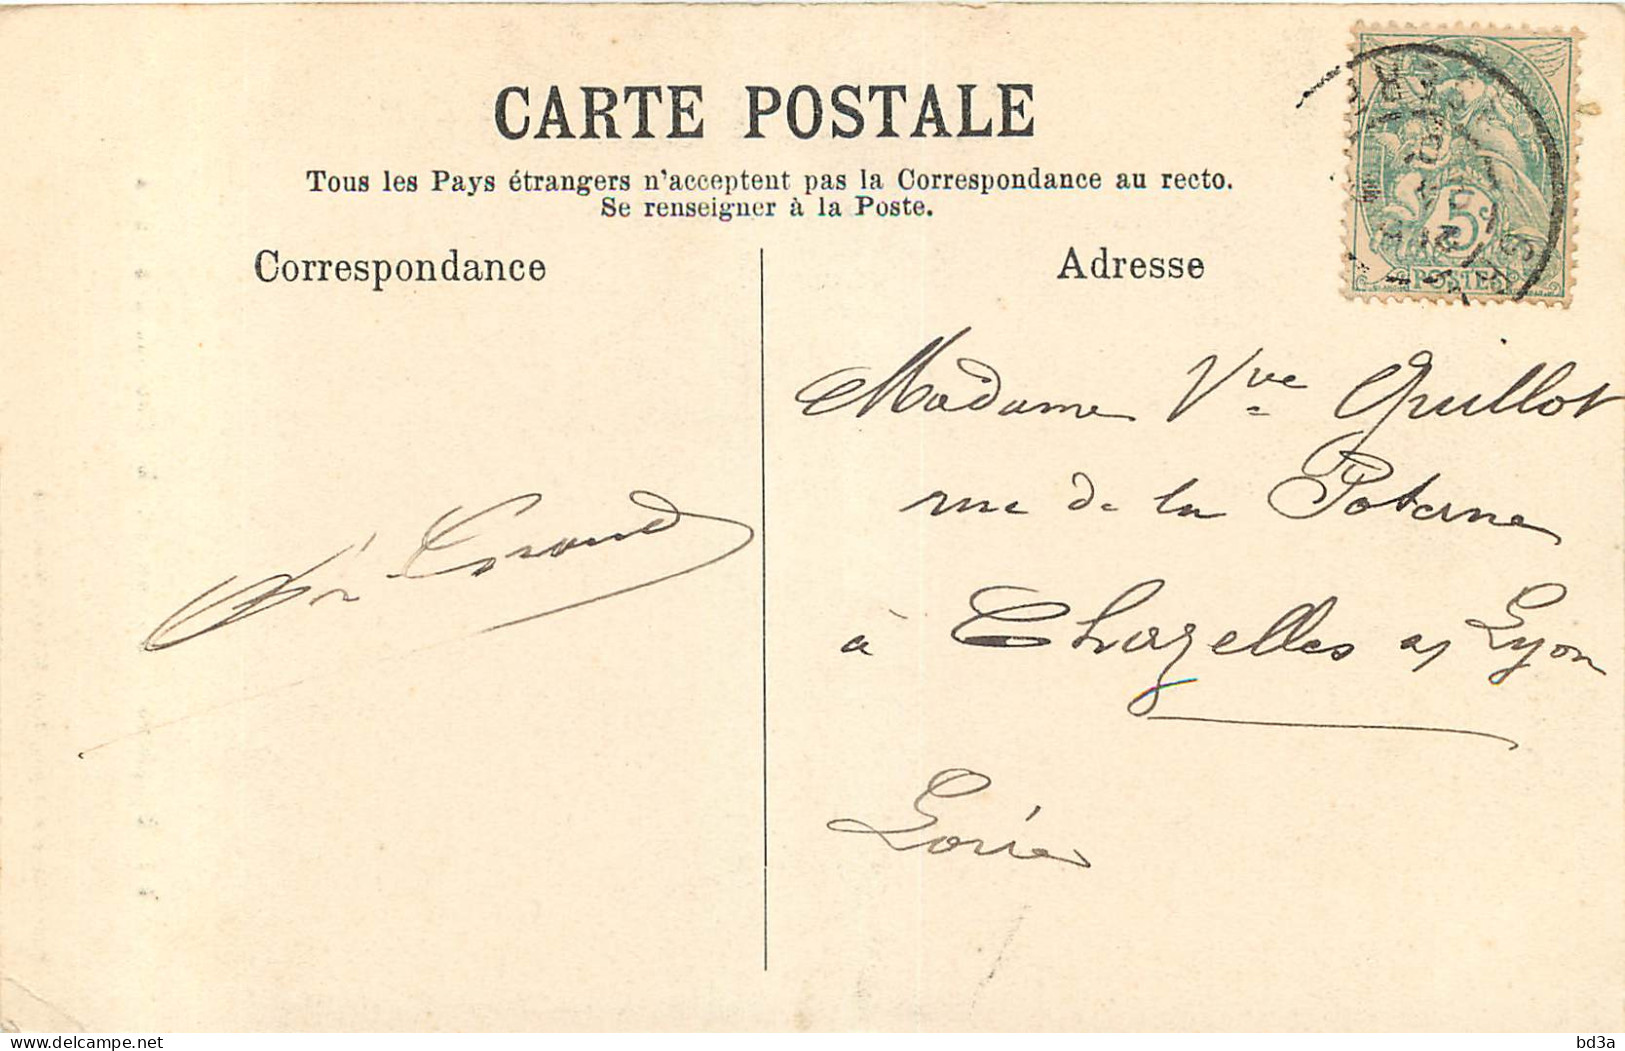 CARTE POSTALE
Tous les Pays étrangers n'acceptent pas la Correspondance au recto.
Se renseigner à la Poste.
Correspondance
Adresse
5c
POSTES
Madame Vve Guillot
rue de la Poterne
à Chazelles s/ Lyon
Loire
www.delcampe.net
bd3a